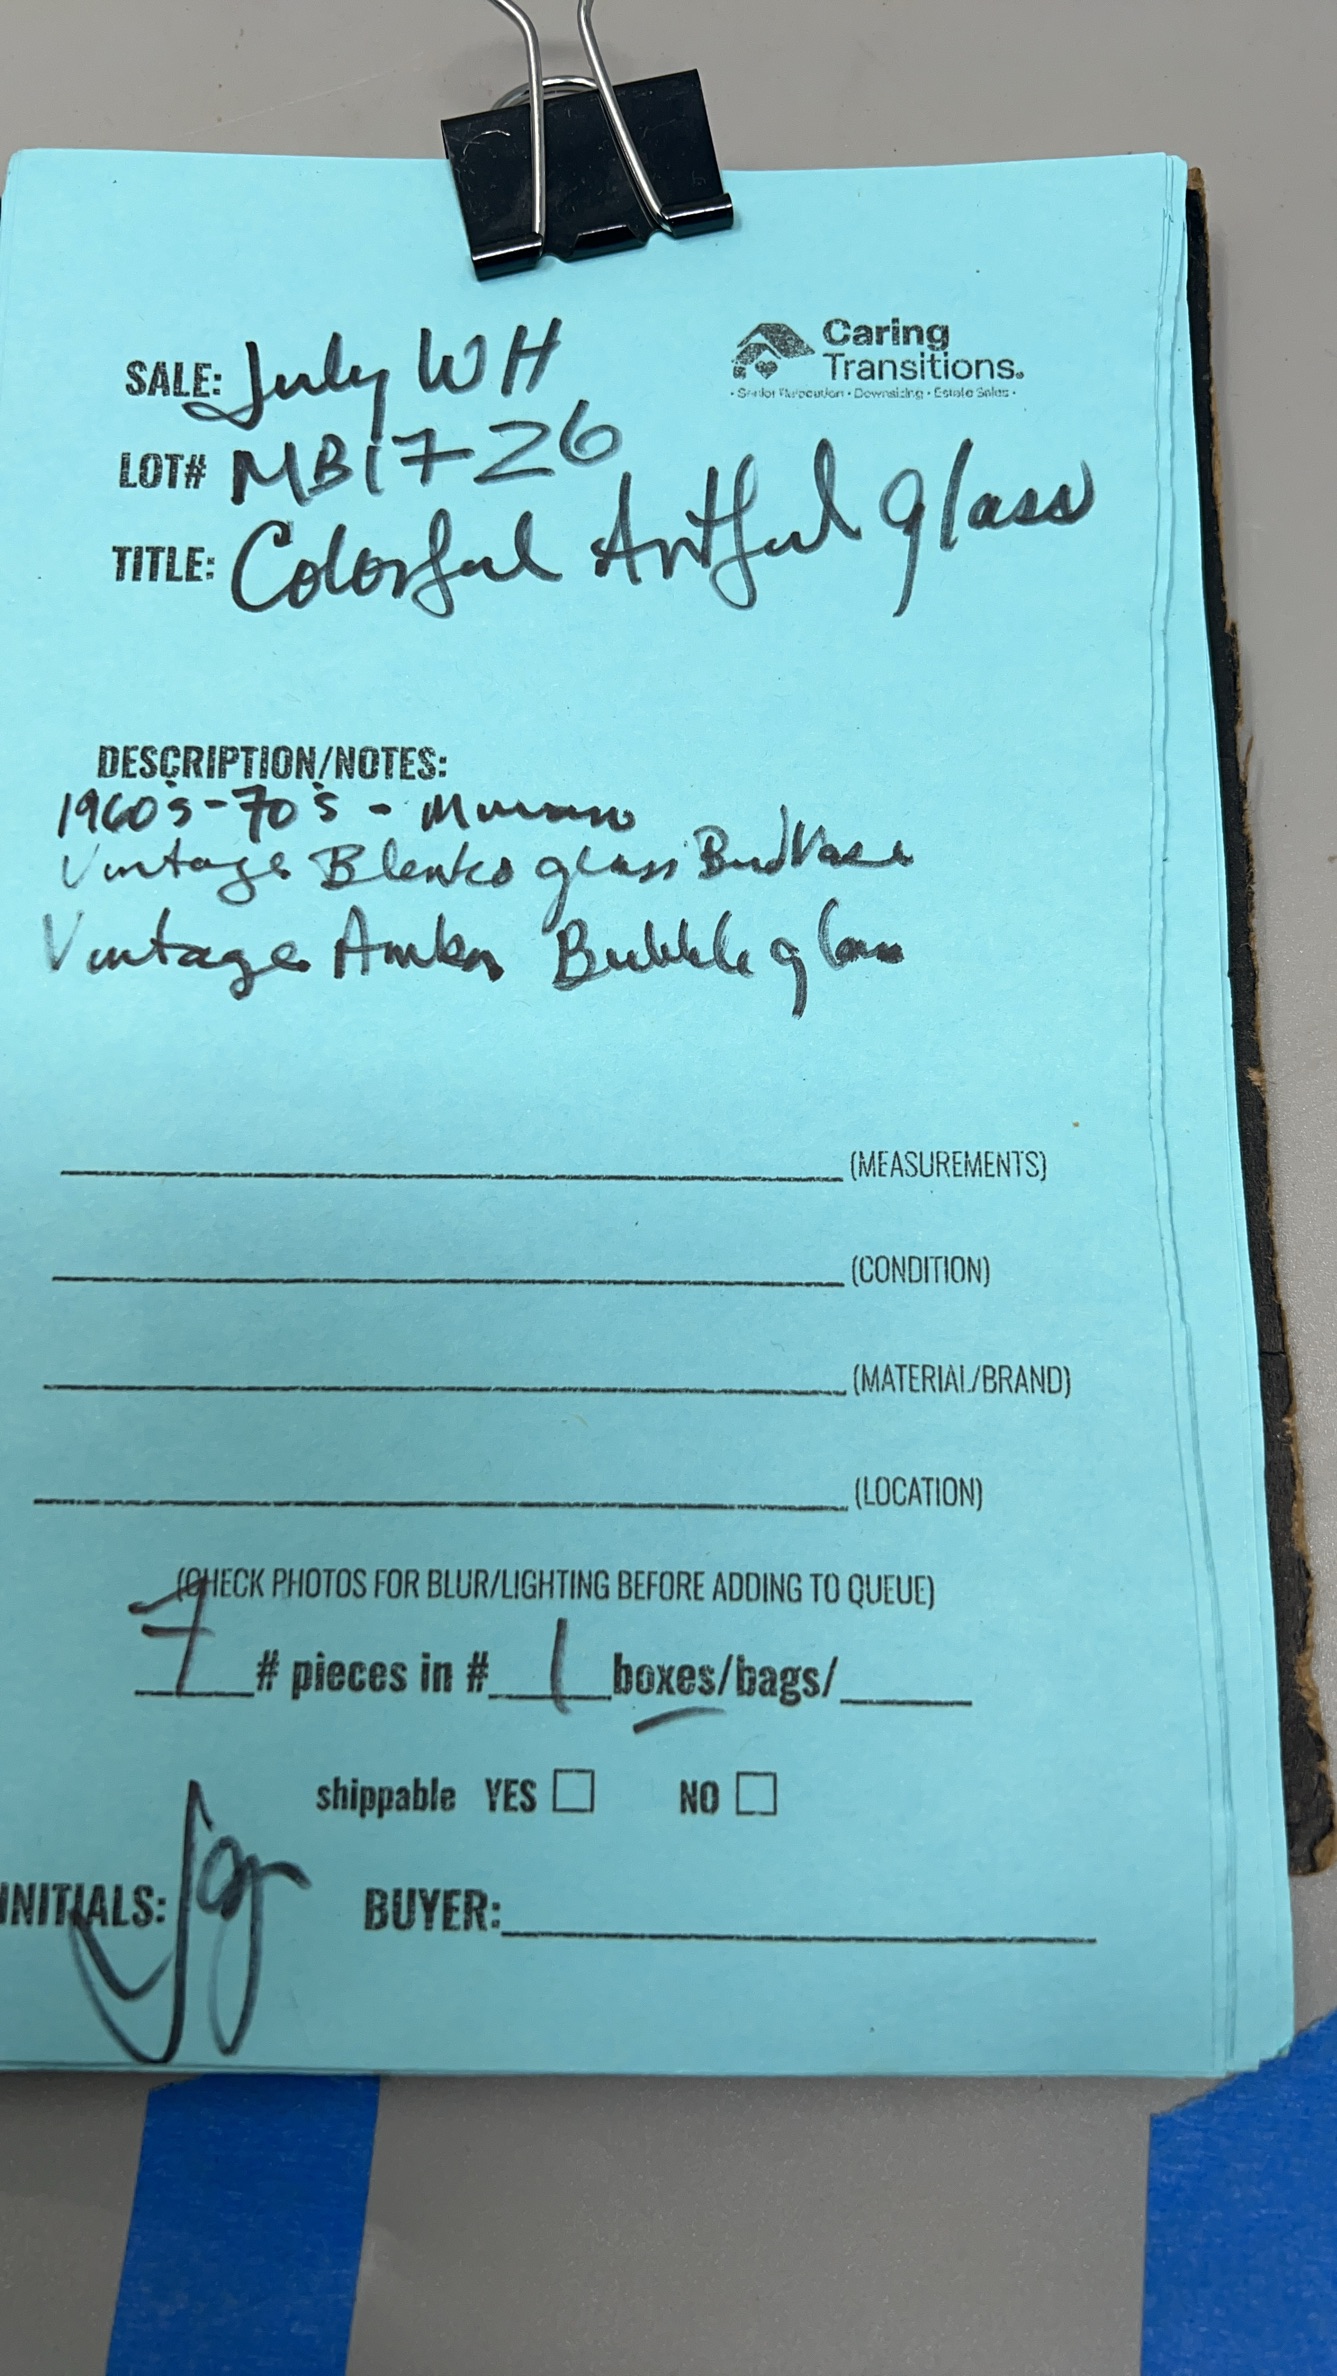 SALE: July WH
Caring
Transitions.
• Senior Relocation • Downsizing • Estate Sales •
LOT# MB1726
TITLE: Colorful Artful glass
DESCRIPTION/NOTES:
1960's-70's - Murano
Vintage Blenko glass Bud Vase
Vintage Amber Bubble glass
(MEASUREMENTS)
(CONDITION)
(MATERIAL/BRAND)
(LOCATION)
(CHECK PHOTOS FOR BLUR/LIGHTING BEFORE ADDING TO QUEUE)
7 # pieces in # 1 boxes/bags/
shippable YES NO
INITIALS: Jg BUYER: